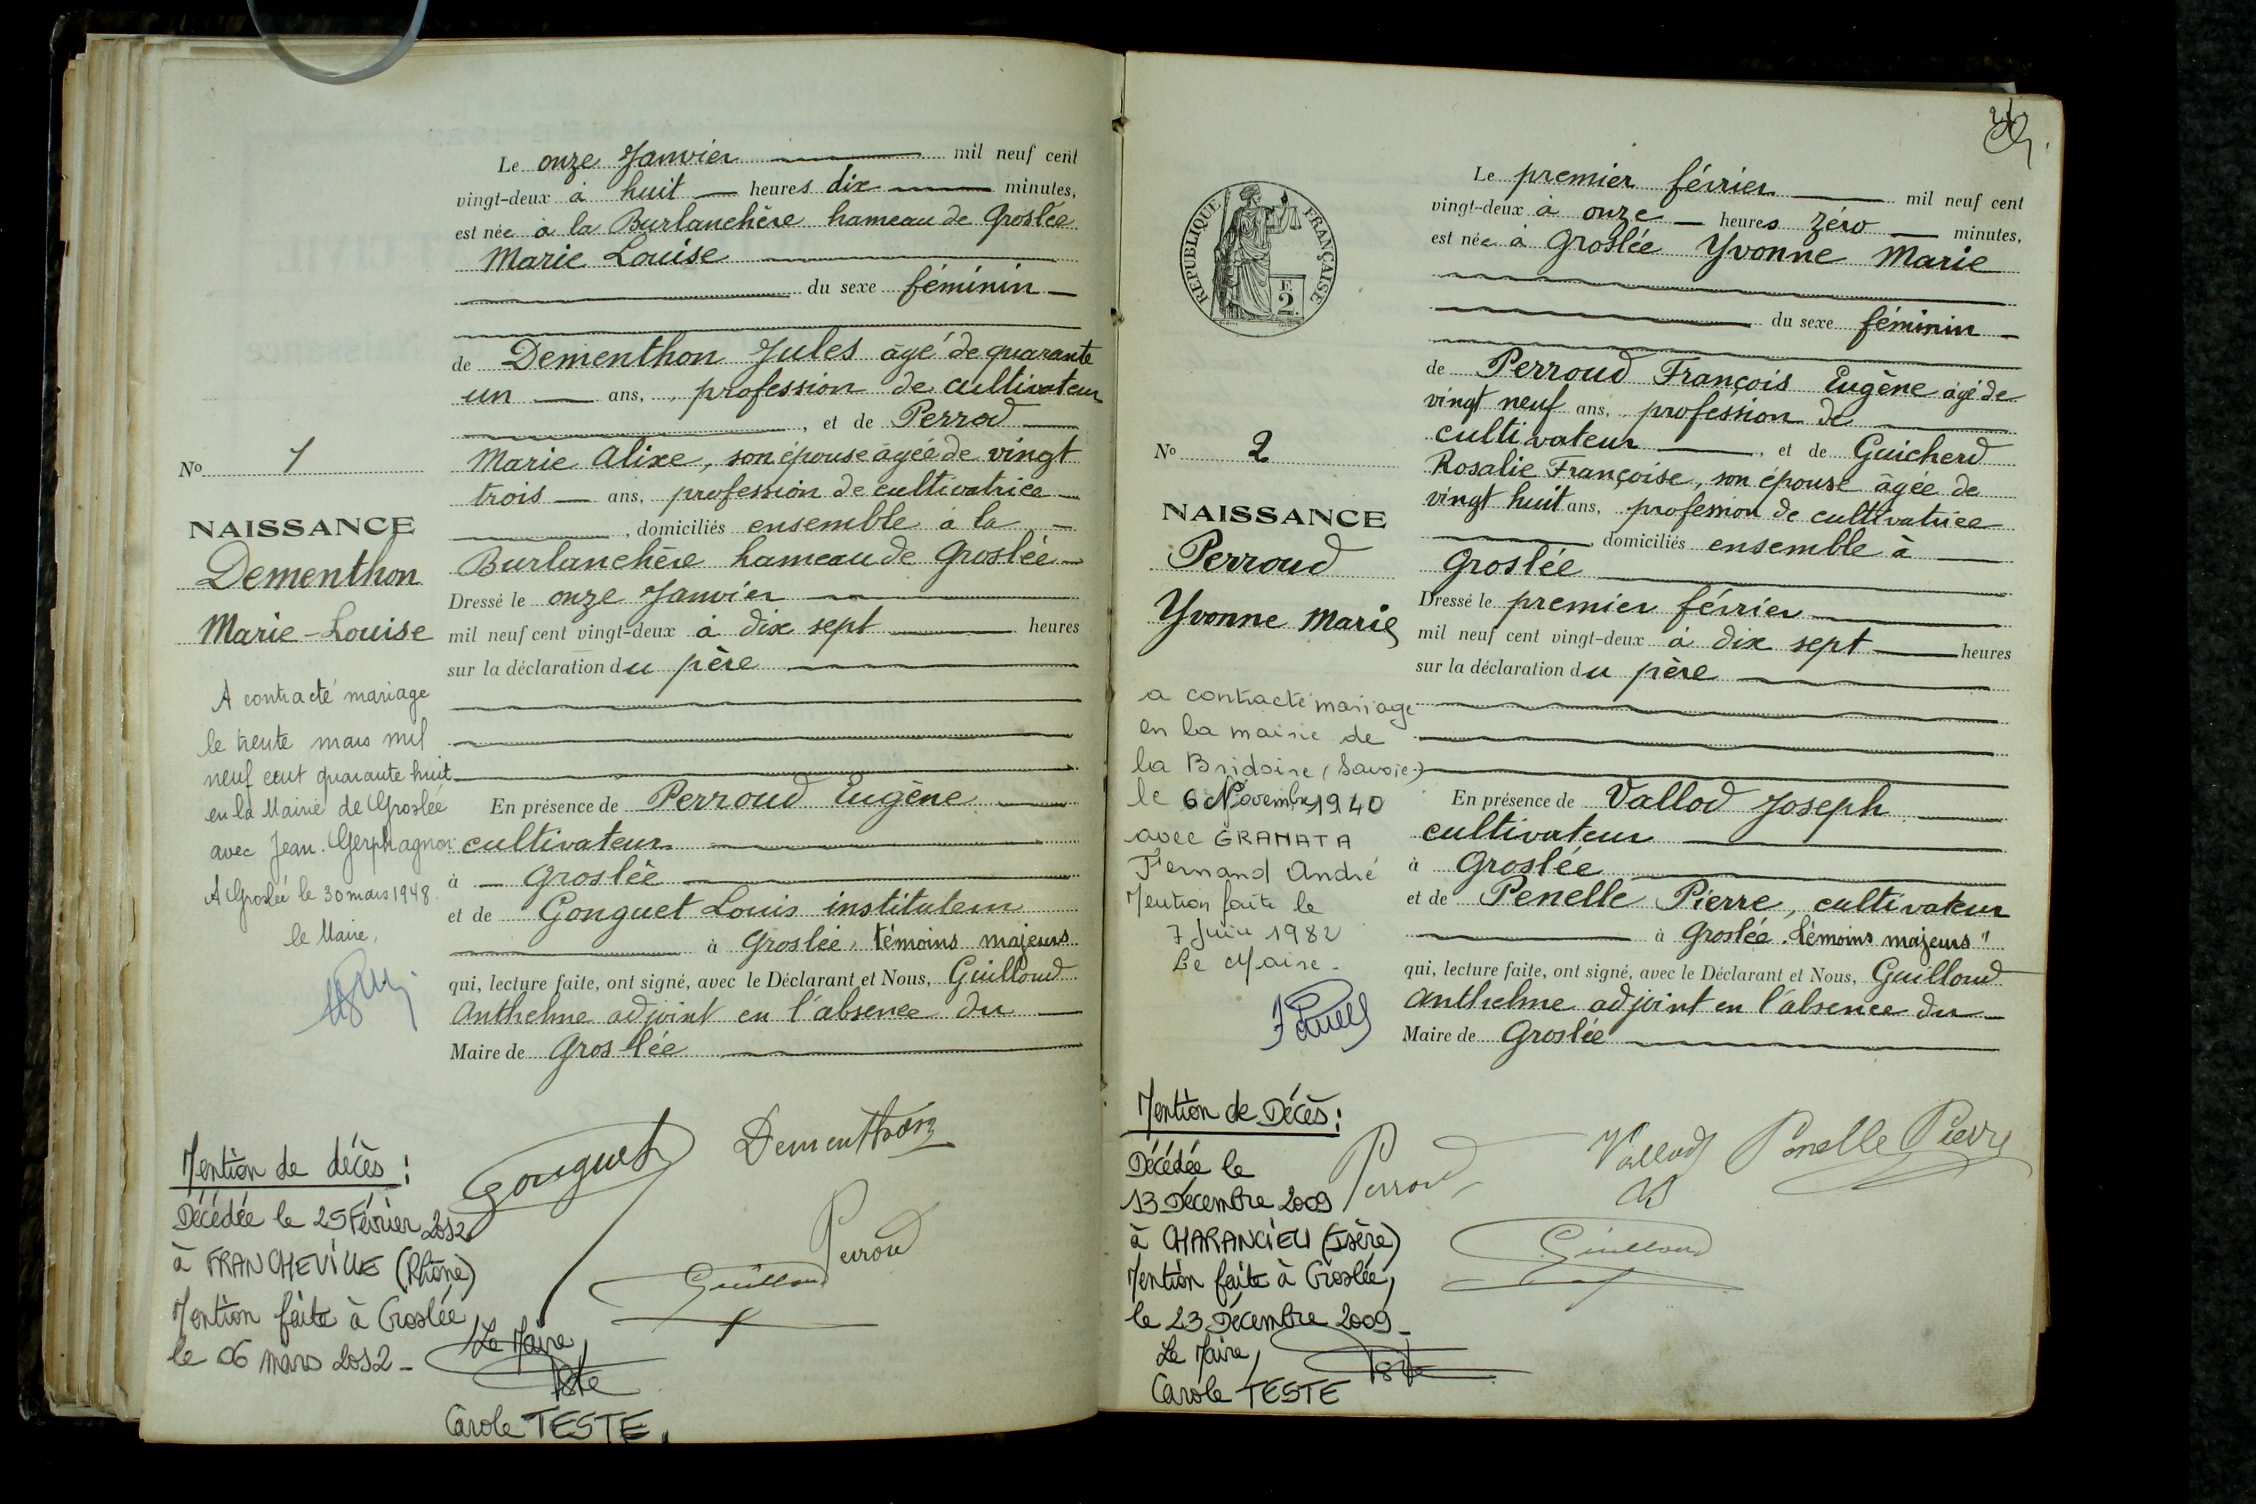 Le onze Janvier mil neuf cent
vingt-deux à huit heures dix minutes,
est née à la Burlanchère hameau de Groslée
Marie Louise
du sexe féminin
de Dementhon Jules âgé de quarante
un ans, profession de cultivateur
, et de Perrod
Marie Alixe, son épouse âgée de vingt
trois ans, profession de cultivatrice
, domiciliés ensemble à la
Burlanchère hameau de Groslée
Dressé le onze Janvier
mil neuf cent vingt-deux à dix sept heures
sur la déclaration du père
En présence de Perroud Eugène
cultivateur
à Groslée
et de Gonguet Louis instituteur
à Groslée, témoins majeurs
qui, lecture faite, ont signé, avec le Déclarant et Nous, Guilloud
Anthelme adjoint en l'absence du
Maire de Groslée
No 1
NAISSANCE
Dementhon
Marie-Louise
A contracté mariage
le trente mars mil
neuf cent quarante huit
en la Mairie de Groslée
avec Jean Gerphagnon
A Groslée le 30 mars 1948.
le Maire,
Mention de décès :
Décédée le 25 Février 2012
à FRANCHEVILLE (Rhône)
Mention faite à Groslée,
le 06 mars 2012 -
Le Maire,
Teste
Carole TESTE.
Gonguet
Dementhon
Perroud
Guilloud
Le premier février mil neuf cent
vingt-deux à onze heures zéro minutes,
est née à Groslée Yvonne Marie
du sexe féminin
de Perroud François Eugène âgé de
vingt neuf ans, profession de
cultivateur, et de Guicherd
Rosalie Françoise, son épouse âgée de
vingt huit ans, profession de cultivatrice
domiciliés ensemble à
Groslée
Dressé le premier février
mil neuf cent vingt-deux à dix sept heures
sur la déclaration du père
En présence de Vallod Joseph
cultivateur
à Groslée
et de Penelle Pierre, cultivateur
à Groslée. témoins majeurs"
qui, lecture faite, ont signé, avec le Déclarant et Nous, Guilloud
Anthelme adjoint en l'absence du
Maire de Groslée
RÉPUBLIQUE FRANÇAISE
F.
2.
No 2
NAISSANCE
Perroud
Yvonne Marie
a contracté mariage
en la mairie de
la Bridoire (Savoie)
le 6 Novembre 1940
avec GRANATA
Fernand André
Mention faite le
7 Juin 1982
Le Maire -
Mention de Décès :
Décédée le
13 Décembre 2009
à CHARANCIEU (Isère)
Mention faite à Groslée,
le 23 Décembre 2009 -
Le Maire,
Teste
Carole TESTE
Perroud
Vallod
Penelle Pierre
Guilloud